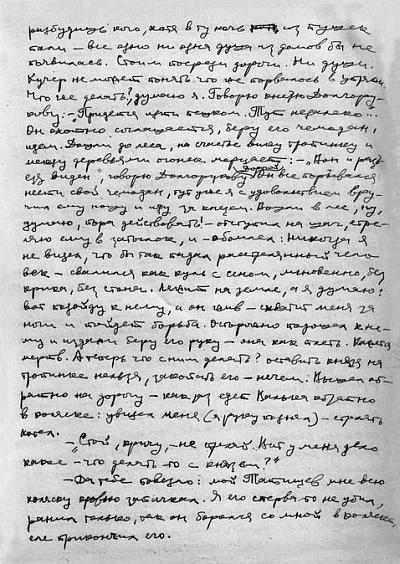 разбудишь кого, хотя в ту ночь из пушек
пали – все одно ни одна душа из домов бы не
появилась. Стоим посреди дороги. Ни души.
Кучер не может понять что же порвалось в упряжи.
Что же делать? думаю я. Говорю князю Долгору-
кову: – Придется идти пешком. Тут недалеко...
Он охотно соглашается, беру его чемодан,
идем. Дошли до леса, на счастье вижу тропинку и
между деревьями огонек мерцает: – "Вон и разъ-
езд виден", говорю Долгорукову. Он все порывался
нести свой чемодан, тут уже я с удовольствием вру-
чил ему ношу и иду за князем. Вошли в лес, ну,
думаю, пора действовать! – отступил на шаг, стре-
ляю ему в затылок, и – обомлел: Никогда я
не видел, что бы так падал расстрелянный чело-
век – свалился как куль с сеном, мгновенно, без
крика, без стона. Лежит на земле, а я думаю:
вот подойду к нему, а он жив – схватит меня за
ноги и пойдет борьба. Осторожно подошел к не-
му и издали беру его руку – она как плеть. Кажется
мертв. А теперь что с ним делать? оставить князя на
тропинке нельзя, закопать его – нечем. Вышел об-
ратно на дорогу – как раз едет обратно
в коляске: увидел меня (я руку поднял) – стрелять
хотел.
– "Стой, кричу, – не стреляй. Вот у меня дело
какое – что делать-то с князем?"
– Да тебе повезло: мой Татищев мне всю
коляску кровью запачкал. Я его стерва-то не убил,
ранил только, так он боролся со мной в коляске,
еле прикончил его.